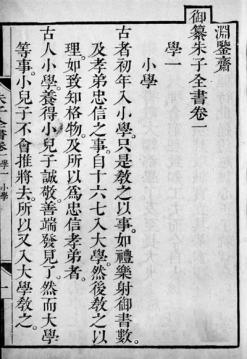 淵鑒齋
御纂朱子全書卷一
學一
小學
古者初年入小學只是教之以事如禮樂射御書數
及孝弟忠信之事自十六七入大學然後教之以
理如致知格物及所以為忠信孝弟者
古人小學養得小兒子誠敬善端發見了然而大學
等事小兒子不會推將去所以又入大學教之